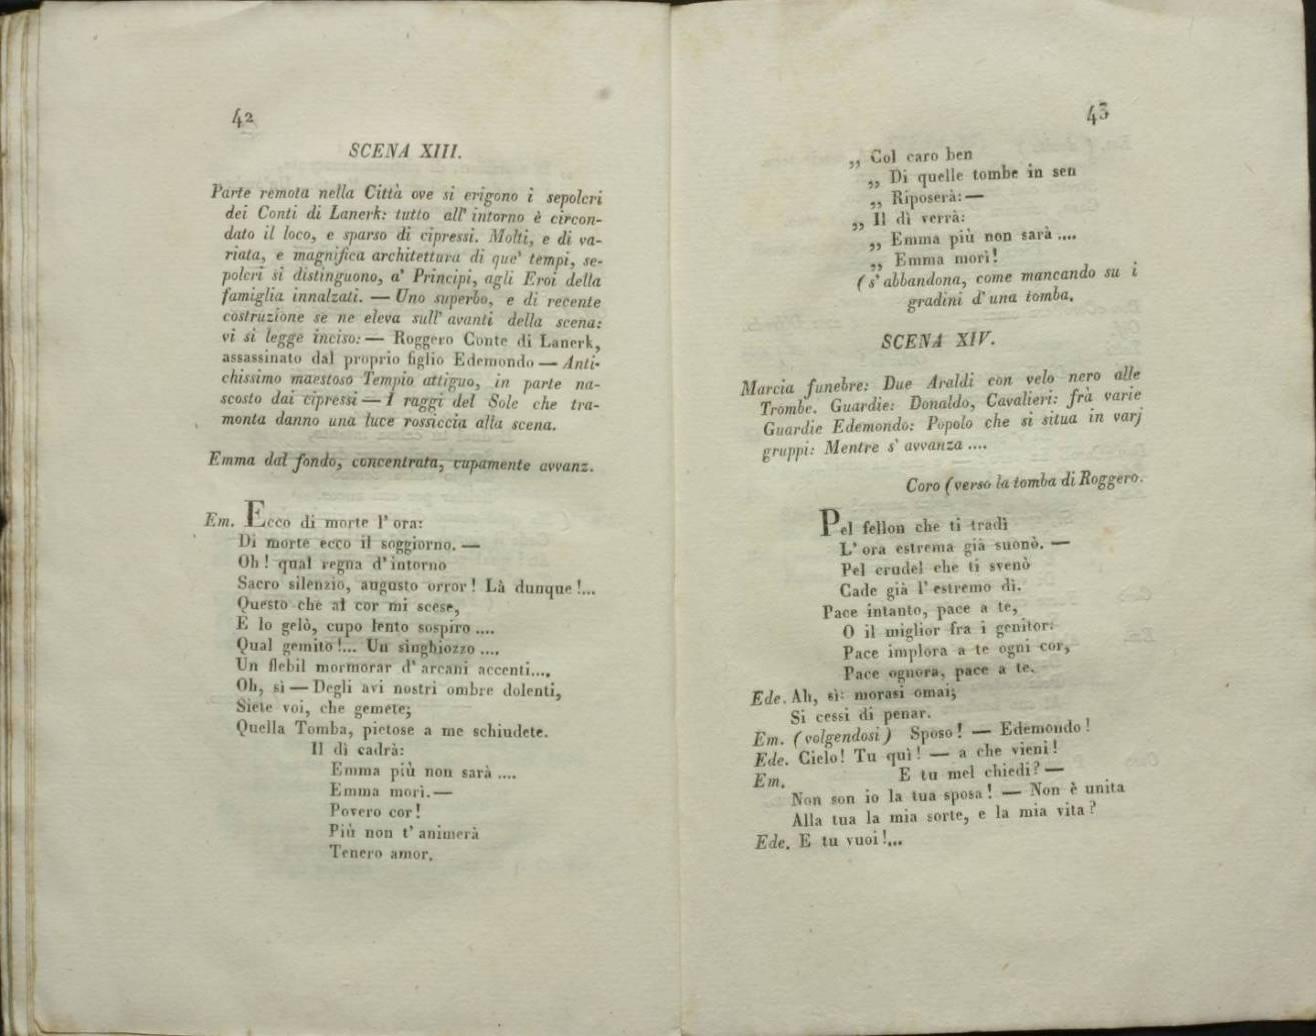 42
SCENA XIII.
Parte remota nella Città ove si erigono i sepolcri
dei Conti di Lanerk: tutto all' intorno è circon-
dato il loco, e sparso di cipressi. Molti, e di va-
riata, e magnifica architettura di que' tempi, se-
polcri si distinguono, a' Principi, agli Eroi della
famiglia innalzati. — Uno superbo, e di recente
costruzione se ne eleva sull' avanti della scena:
vi si legge inciso: — Roggero Conte di Lanerk,
assassinato dal proprio figlio Edemondo — Anti-
chissimo maestoso Tempio attiguo, in parte na-
scosto dai cipressi — I raggi del Sole che tra-
monta danno una luce rossiccia alla scena.
Emma dal fondo, concentrata, cupamente avvanz.
Em. Ecco di morte l' ora:
Di morte ecco il soggiorno. —
Oh! qual regna d' intorno
Sacro silenzio, augusto orror! Là dunque!...
Questo che al cor mi scese,
E lo gelò, cupo lento sospiro ....
Qual gemito!... Un singhiozzo ....
Un flebil mormorar d' arcani accenti....
Oh, sì — Degli avi nostri ombre dolenti,
Siete voi, che gemete;
Quella Tomba, pietose a me schiudete.
Il dì cadrà:
Emma più non sarà ....
Emma morì. —
Povero cor!
Più non t' animerà
Tenero amor.
43
„ Col caro ben
„ Di quelle tombe in sen
„ Riposerà: —
„ Il dì verrà:
„ Emma più non sarà ....
„ Emma morì!
(s' abbandona, come mancando su i
gradini d' una tomba.
SCENA XIV.
Marcia funebre: Due Araldi con velo nero alle
Trombe. Guardie: Donaldo, Cavalieri: frà varie
Guardie Edemondo: Popolo che si situa in varj
gruppi: Mentre s' avvanza ....
Coro (verso la tomba di Roggero.
Pel fellon che ti tradì
L' ora estrema già suonò. —
Pel crudel che ti svenò
Cade già l' estremo dì.
Pace intanto, pace a te,
O il miglior fra i genitor:
Pace implora a te ogni cor,
Pace ognora, pace a te.
Ede. Ah, sì: morasi omai;
Si cessi di penar.
Em. (volgendosi) Sposo! — Edemondo!
Ede. Cielo! Tu quì! — a che vieni!
Em. E tu mel chiedi? —
Non son io la tua sposa! — Non è unita
Alla tua la mia sorte, e la mia vita?
Ede. E tu vuoi!...